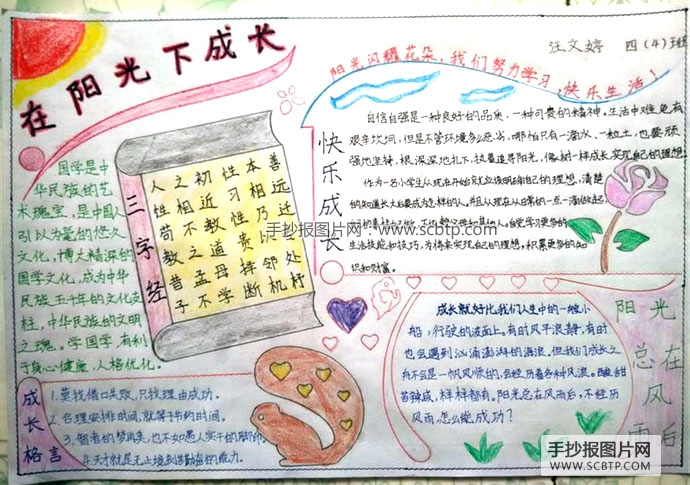 在阳光下成长
汪文婷 四(4)班
阳光闪耀花朵,我们努力学习,快乐生活!
国学是中
华民族的艺
术瑰宝,是中国人
引以为毫的悠久
文化,博大精深的
国学文化,成为中华
民族五千年的文化支
柱,中华民族的文明
之魂。学国学有利
于身心健康,人格优化。
三字经
人之初 性本善
性相近 习相远
苟不教 性乃迁
教之道 贵以
昔孟母 择邻处
子不学 断机杼
快乐成长
自信自强是一种良好的品来,一种可贵的精神。生活中难免有
艰辛坎坷,但是不管环境多么恶劣,哪怕只有一潘水,一粒土,也要顽
强地坚持,根深深地扎下,执着追寻阳光,像树一样成长,实现自己的理想。
作为一名小学生从现在开始就应该明确自己的理想,清楚
的知道长大后要成为怎样的人,并从现在从点滴的一点一滴做起,
自觉学习更多的
生活技能和技巧,为将来实现自己的理想,积累更多的知
识和财富。
手抄报图片网 - www.scbtp.com
成长就好比我们人生中的一艘小
船,行驶的波面上,有时风平浪静,有时
也会遇到汹涌澎湃的海浪。但我们成长之
舟不会是一帆风顺的,会经历着各种风浪。酸甜
苦辣咸,样样都有。阳光总在风雨后,不经历
风雨怎么能成功?
阳光总在风雨后
成长格言
1.莫找借口失败,只找理由成功。
2.合理安排时间,就等于节约时间。
3.智者的梦再美,也不如愚人实干的脚印。
4.天才就是无止境刻苦勤奋的能力。
手抄报图片网
WWW.SCBTP.COM